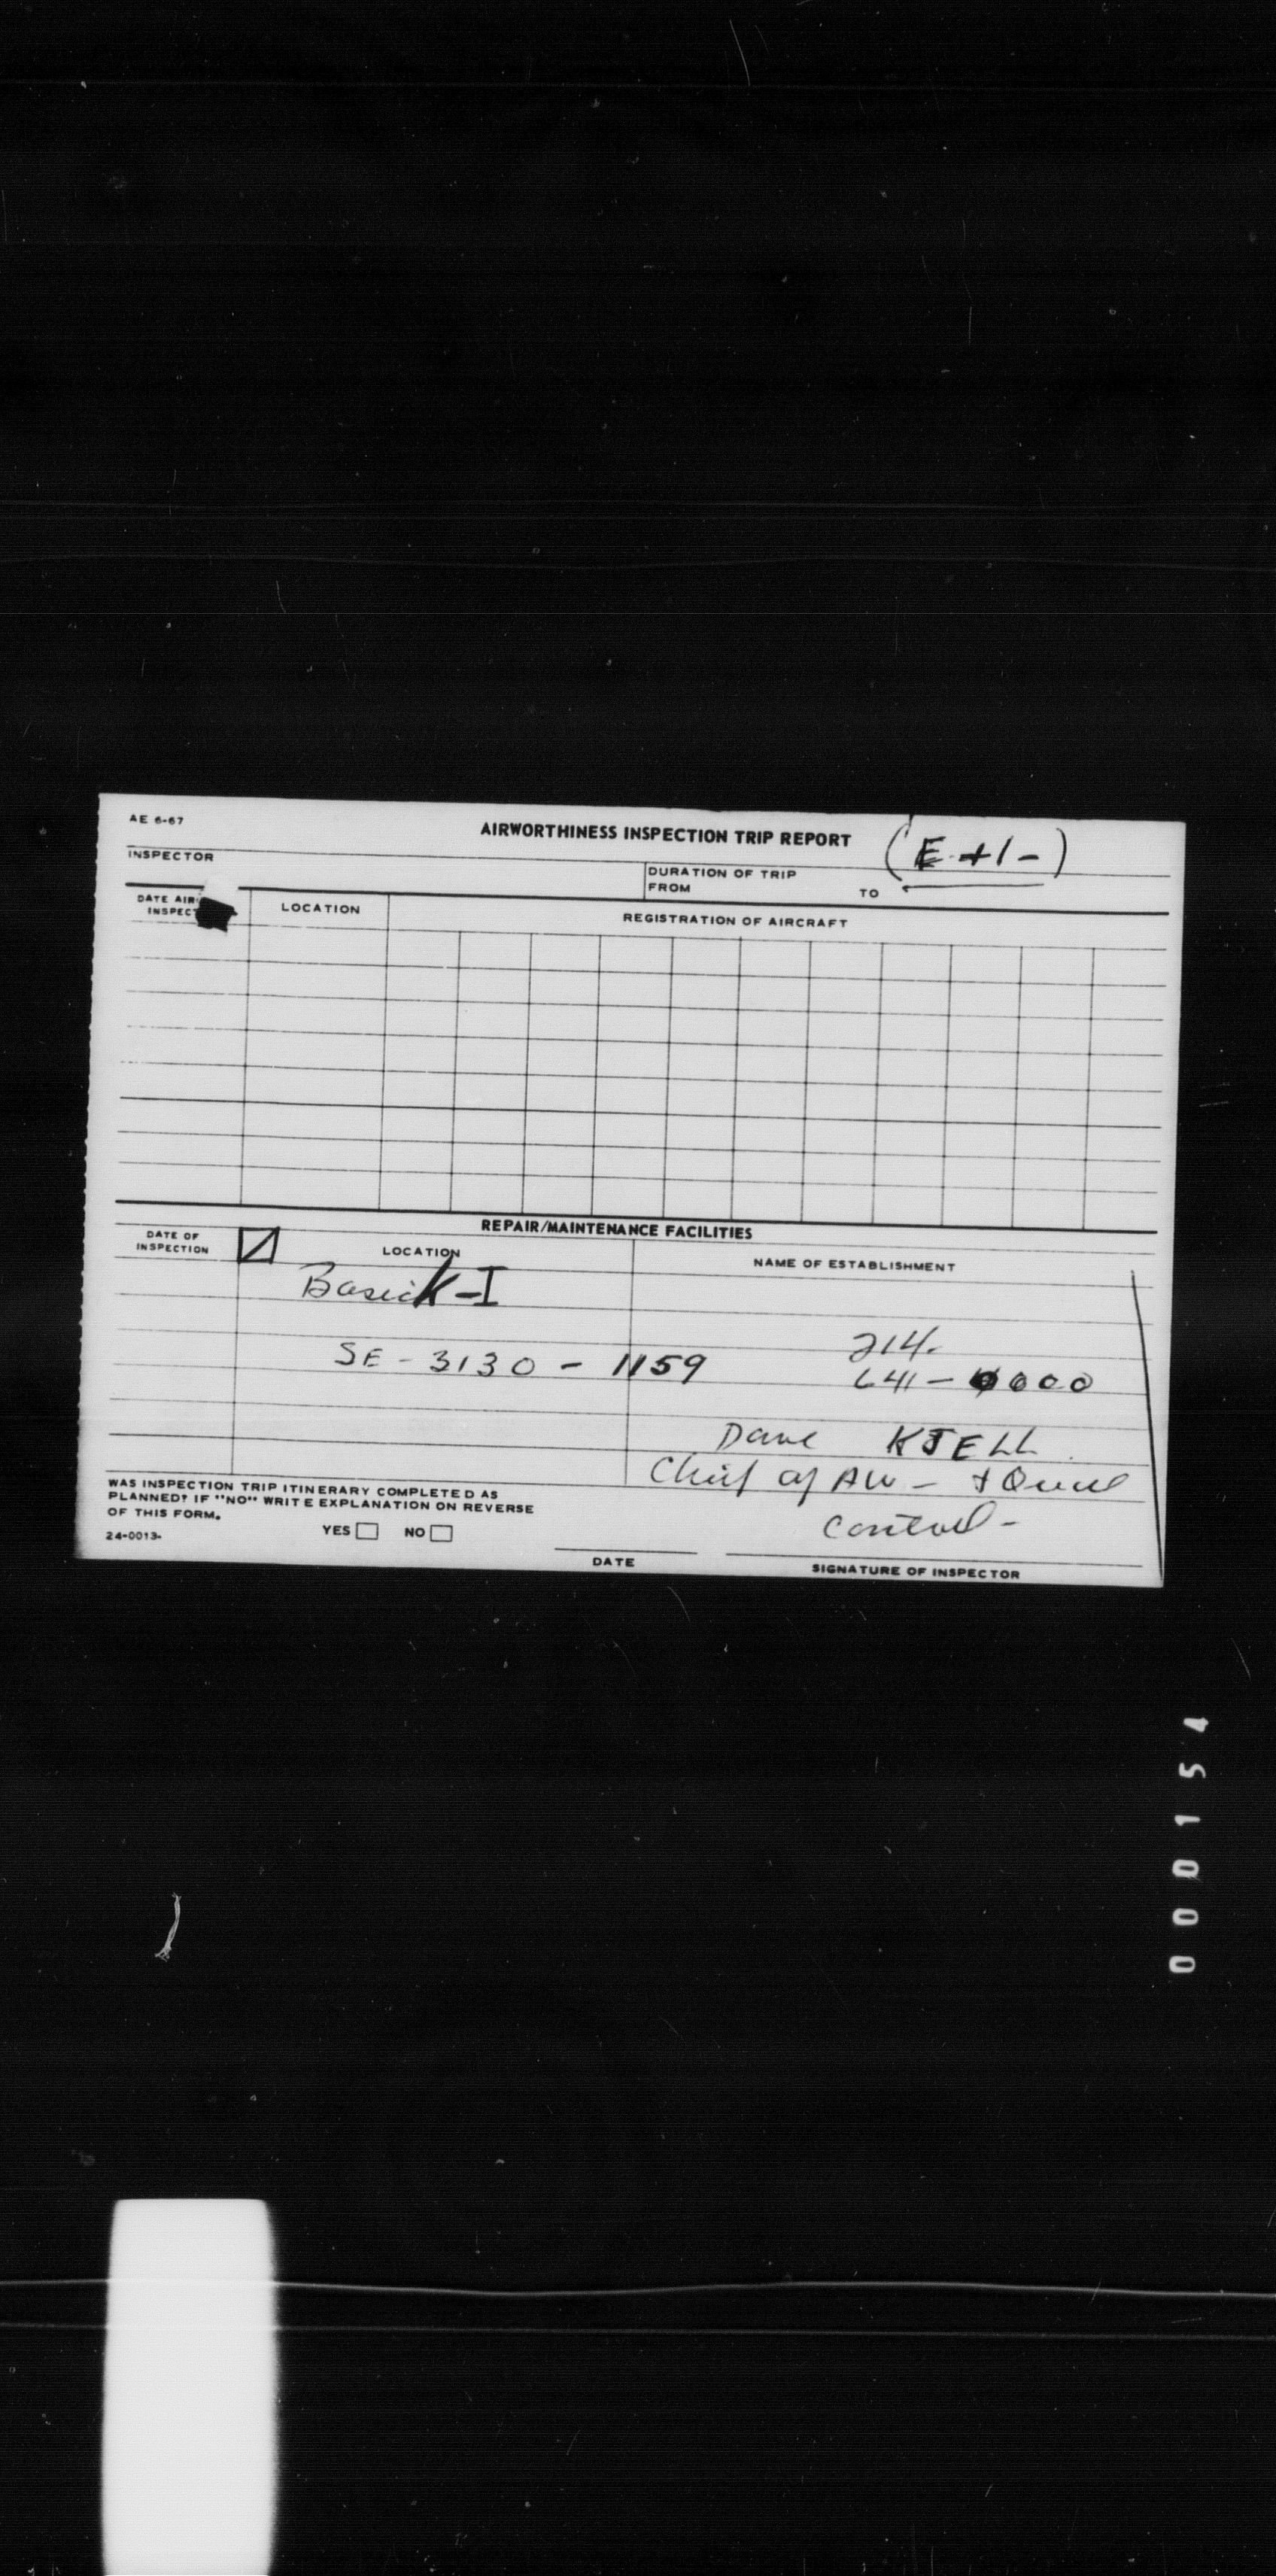 AE 6-67
AIRWORTHINESS INSPECTION TRIP REPORT
(E+1-)
INSPECTOR
DURATION OF TRIP
FROM TO
DATE AIR
INSPECT
LOCATION
REGISTRATION OF AIRCRAFT
REPAIR/MAINTENANCE FACILITIES
DATE OF
INSPECTION
LOCATION
NAME OF ESTABLISHMENT
SE-3130-1159
214.
641-0000
Dave KJELL
Chief of AW - +
Control-
WAS INSPECTION TRIP ITINERARY COMPLETED AS
PLANNED? IF "NO" WRITE EXPLANATION ON REVERSE
OF THIS FORM.
YES NO
24-0013-
DATE
SIGNATURE OF INSPECTOR
000154